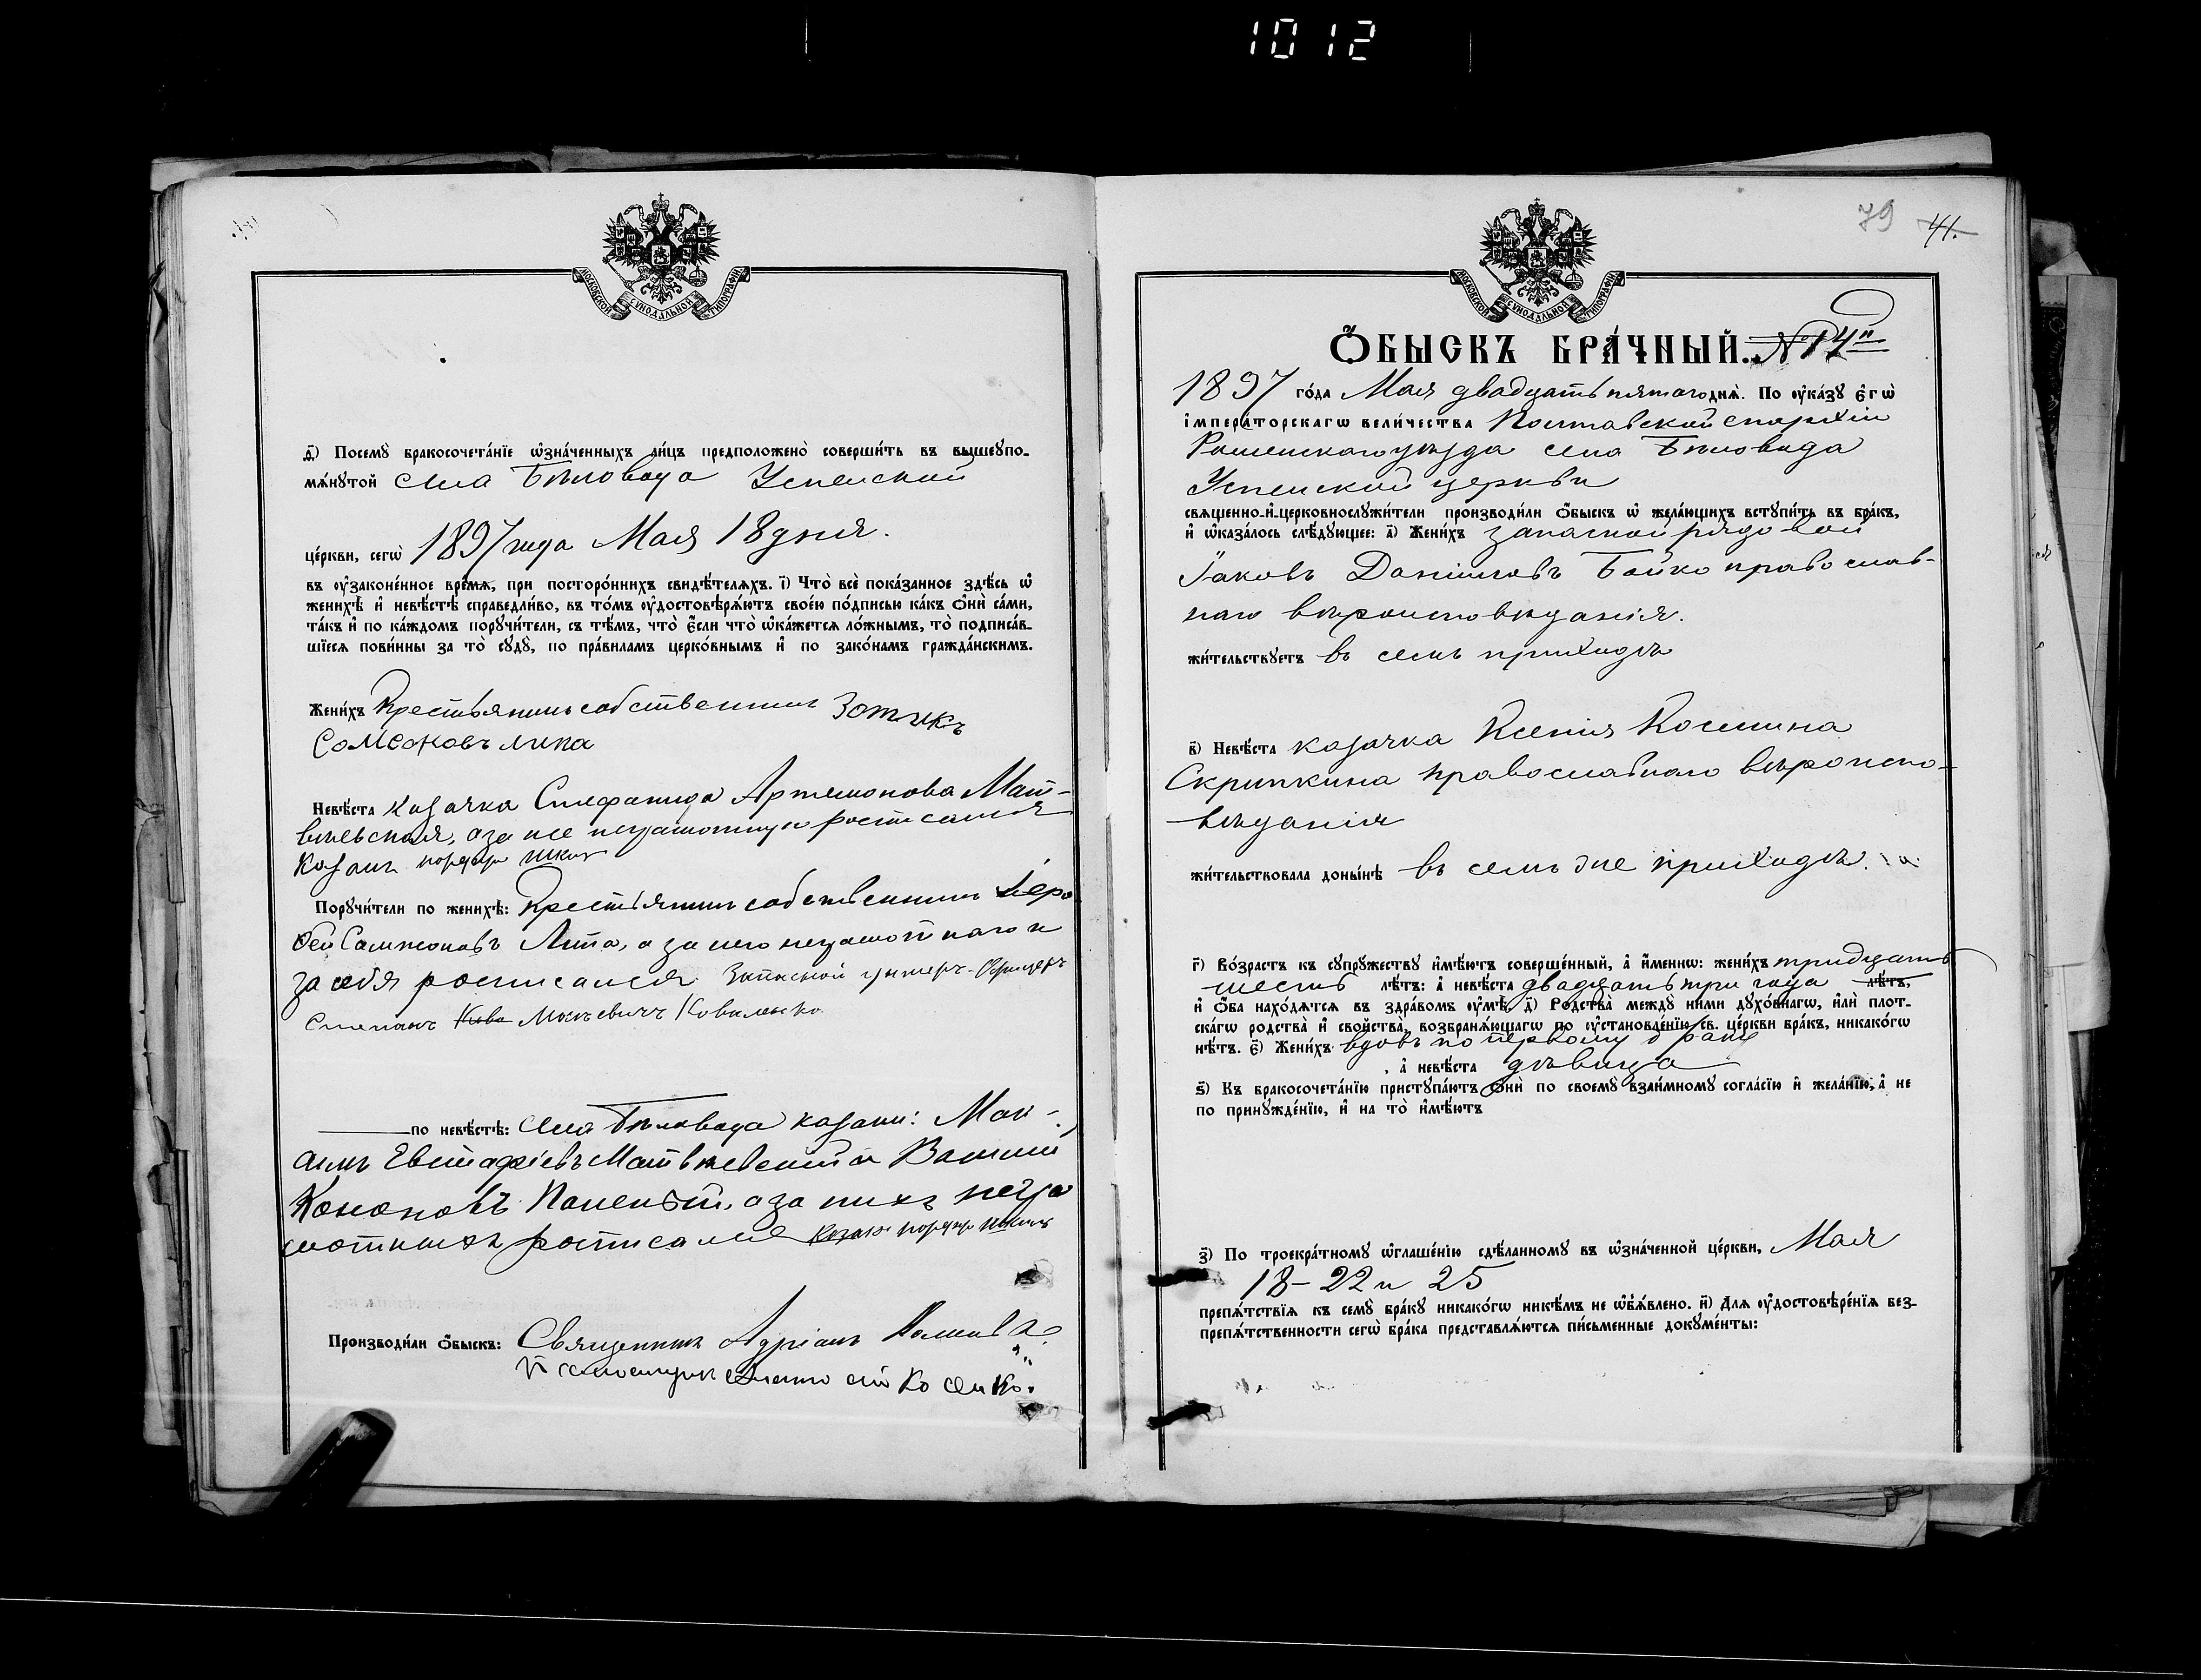 1012
МОСКОВСКОЙ СУНОДАЛЬНОЙ ТИПОГРАФІИ
д҃і) Посемꙋ̀ бракосочета́нїе ѡ҆зна́ченныхъ ли́цъ предположено̀ соверши́ть въ вышеꙋпо-
мѧ́нꙋтой села Бѣловода Успенской
це́ркви, сегѡ̀ 1897 года Мая 18 дня.
въ ᲂу҆зако́ненное вре́мѧ, при посторо́ннихъ свидѣ́телѧхъ. і҃) Что̀ всѐ пока́занное здѣ́сь ѡ҆
женихѣ̀ и҆ невѣ́стѣ справедли́во, въ то́мъ ᲂу҆достовѣрѧ́ютъ свое́ю по́дписью ка́къ ѻ҆нѝ са́ми,
та́къ и҆ по ка́ждомъ порꙋчи́тели, съ тѣ́мъ, что̀ є҆́сли что̀ ѡ҆ка́жетсѧ ло́жнымъ, то̀ подписа́в-
шїесѧ пови́нны за то̀ сꙋдꙋ̀, по пра́виламъ церко́внымъ и҆ по зако́намъ гражда́нскимъ.
Жени́хъ Крестьянинъ собственникъ Зотикъ
Самсоновъ Липа
Невѣ́ста козачка Стефанида Артемонова Мат-
вѣевская, а за нее неграмотную росписался
Козакъ Порфир Шкиль
Порꙋчи́тели по женихѣ̀: Крестьянинъ собственникъ Іеро
фей Сампсоновъ Липа, а за него неграмотнаго и
за себя росписался Запасной унтеръ-Офицеръ
Степанъ Кова Моисѣевичъ Коваленко
по невѣ́стѣ: села Бѣловода козаки: Мак-
симъ Евстафіевъ Матвѣевскій и Василій
Кононовъ а за нихъ негра
мотныхъ росписался Козакъ Порфир Шкиль
Производи́ли ѻ҆́быскъ: Священникъ Адріанъ
79 41.
МОСКОВСКОЙ СУНОДАЛЬНОЙ ТИПОГРАФІИ
Ѻ҆́БЫСКЪ БРА́ЧНЫЙ. № 14й
1897 го́да Мая двадцать пятаго днѧ̀. По ᲂу҆ка́зꙋ Є҆гѡ̀
і҆мпера́торскагѡ вели́чества Полтавской епархіи
Роменскаго уѣзда села Бѣловода
Успенской церкви
свѧще́нно-и҆-церковнослꙋжи́тели производи́ли ѻ҆́быскъ ѡ҆ жела́ющихъ встꙋпи́ть въ бра́къ,
и҆ ѡ҆каза́лось слѣ́дꙋющее: а҃) Жени́хъ запасной рядовой
Іаковъ Даніиловъ Бойко православ-
наго вѣроисповѣданія.
жи́тельствꙋетъ въ семъ приходѣ
в҃) Невѣ́ста козачка Ксенія Космина
Скрипкина православнаго вѣроиспо-
вѣданія
жи́тельствовала донынѣ въ семъ же приходѣ.
г҃) Во́зрастъ къ сꙋпрꙋ́жествꙋ и҆мѣ́ютъ соверше́нный, а҆ и҆́меннѡ: жени́хъ тридцать
шесть лѣ́тъ: а҆ невѣ́ста двадцать три года лѣ́тъ,
и҆ ѻ҆́ба нахо́дѧтсѧ въ здра́вомъ ᲂу҆мѣ̀. д҃) Родства̀ междꙋ̀ ни́ми дꙋхо́внагѡ, и҆лѝ плот-
ска́гѡ родства̀ и҆ сво́йства, возбранѧ́ющагѡ по ᲂу҆становле́нїю св. це́ркви бра́къ, никако́гѡ
нѣ́тъ. є҃) Жени́хъ вдовъ по первому браку
, а҆ невѣ́ста дѣвица
ѕ҃) Къ бракосочета́нїю пристꙋпа́ютъ ѻ҆нѝ по своемꙋ̀ взаи́мномꙋ согла́сїю и҆ жела́нїю, а҆ не
по принꙋжде́нїю, и҆ на то̀ и҆мѣ́ютъ
з҃) По троекра́тномꙋ ѡ҆глаше́нїю сдѣ́ланномꙋ въ ѡ҆зна́ченной це́ркви, Мая
18 - 22 и 25
препѧ́тствїѧ къ семꙋ̀ бра́кꙋ никако́гѡ никѣ́мъ не ѡ҆бъѧ́влено. и҃) Длѧ ᲂу҆достовѣре́нїѧ без-
препѧ́тственности сегѡ̀ бра́ка представлѧ́ютсѧ пи́сьменные докꙋме́нты: